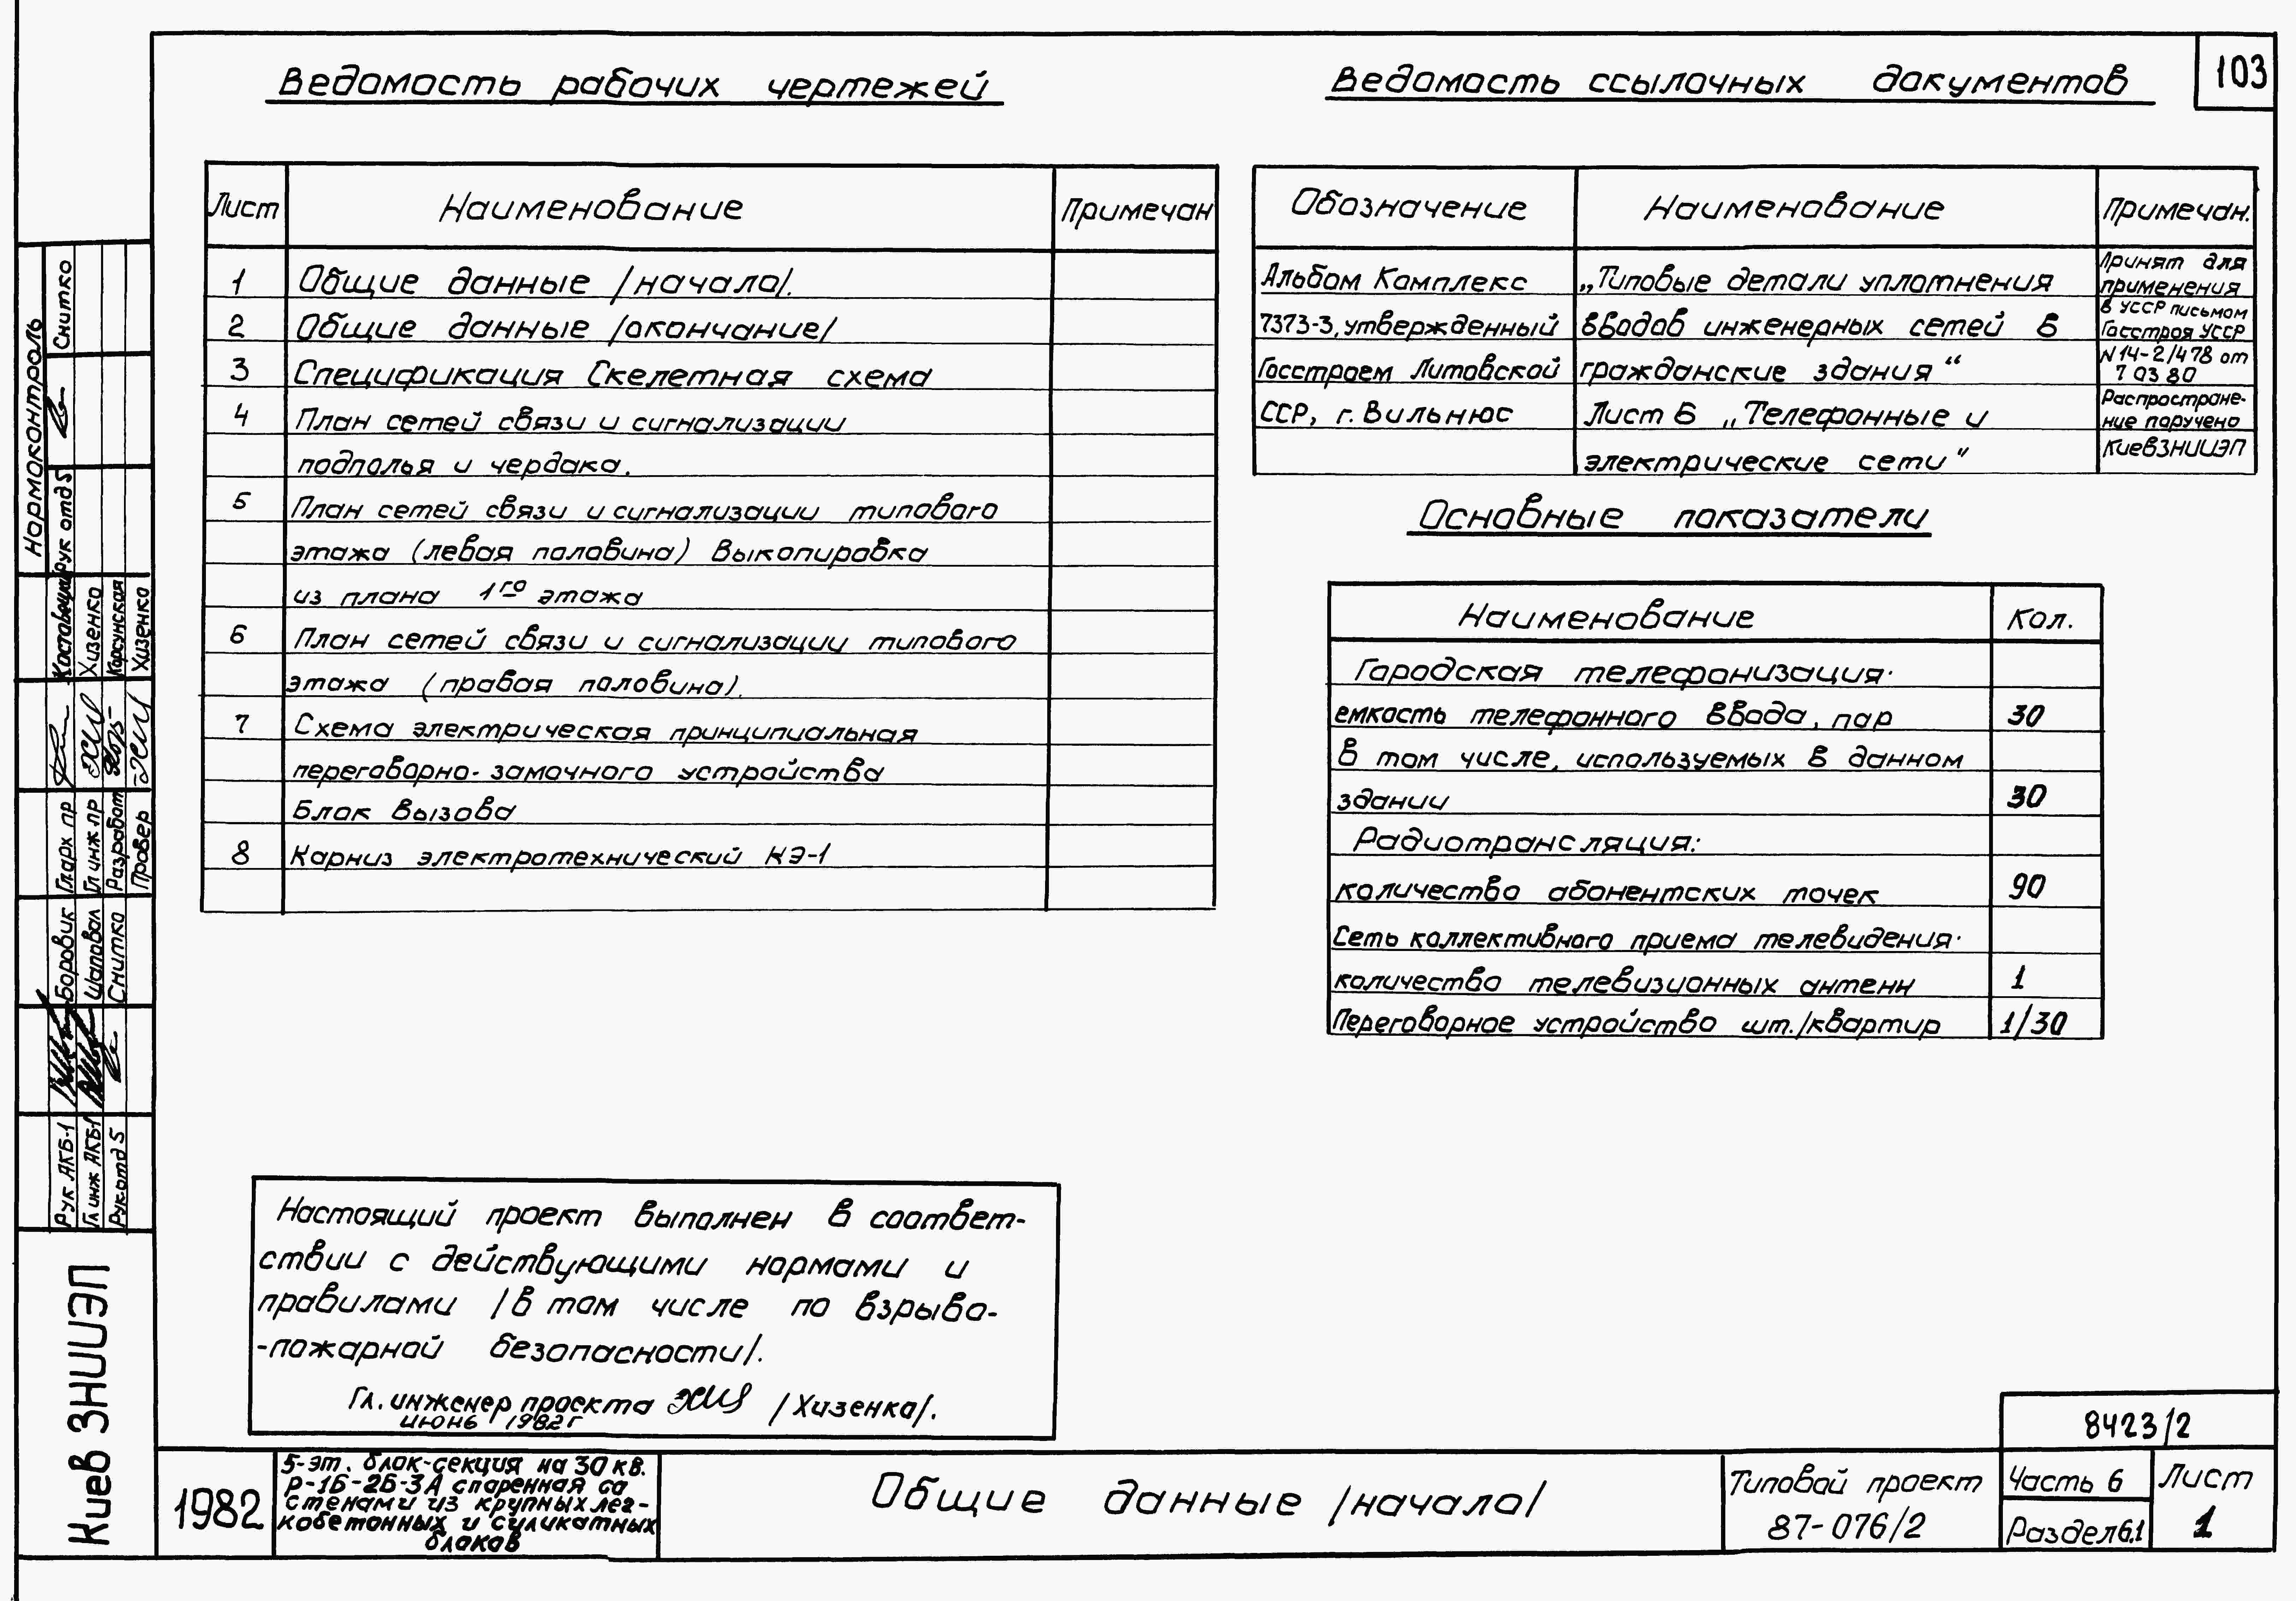 103
Ведомость рабочих чертежей
Лист Наименование Примечан
1 Общие данные /начало/.
2 Общие данные /окончание/
3 Спецификация Скелетная схема
4 План сетей связи и сигнализации
подполья и чердака.
5 План сетей связи и сигнализации типового
этажа (левая половина) Выкопировка
из плана 1го этажа
6 План сетей связи и сигнализации типового
этажа (правая половина).
7 Схема электрическая принципиальная
переговорно-замочного устройства
Блок вызова
8 Карниз электротехнический КЭ-1
Ведомость ссылочных документов
Обозначение Наименование Примечан.
Альбом Комплекс
7373-3, утвержденный
Госстроем Литовской
ССР, г. Вильнюс
„Типовые детали уплотнения
вводов инженерных сетей в
гражданские здания“
Лист Б „Телефонные и
электрические сети“
Принят для
применения
в УССР письмом
Госстроя УССР
N 14-2/478 от
7 03 80
Распростране-
ние поручено
КиевЗНИИЭП
Основные показатели
Наименование Кол.
Городская телефонизация:
емкость телефонного ввода, пар 30
В том числе, используемых в данном
здании 30
Радиотрансляция:
количество абонентских точек 90
Сеть коллективного приема телевидения:
количество телевизионных антенн 1
Переговорное устройство шт./квартир 1/30
Настоящий проект выполнен в соответ-
ствии с действующими нормами и
правилами /в том числе по взрыво-
-пожарной безопасности/.
Гл. инженер проекта /Хизенко/.
июнь 1982 г
Нормоконтроль
Рук отд 5 Снитко
Гл арх пр
Гл инж пр Хизенко
Разработ Корсунская
Провер Хизенко
Рук АКБ-1 Боровик
Гл инж АКБ-1 Шаповал
Рук отд 5 Снитко
Киев ЗНИИЭП
1982
5-эт. блок-секция на 30 кв.
Р-1Б-2Б-3А спаренная со
стенами из крупных лег-
кобетонных и силикатных
блоков
Общие данные /начало/
Типовой проект
87-076/2
8423/2
Часть 6
Раздел 6.1
Лист
1